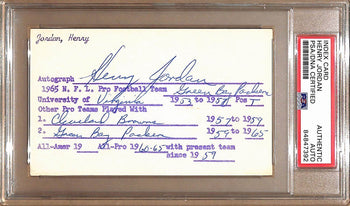 Jordan, Henry
Autograph Henry Jordan
1965 N.F.L. Pro Football Team Green Bay Packers
University of Virginia 1953 to 1956 Pos T
Other Pro Teams Played With
1. Cleveland Browns 1957 to 1959
2. Green Bay Packers 1959 to 1965
All-Amer 19 All-Pro 1960-65 with present team
since 1959
INDEX CARD
HENRY JORDAN
PSA/DNA CERTIFIED
PSA
AUTHENTIC
AUTO
84847392